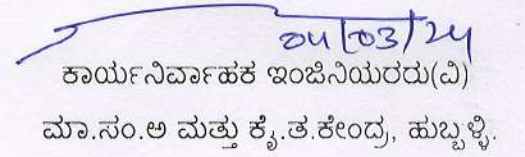 04/03/24
ಕಾರ್ಯನಿರ್ವಾಹಕ ಇಂಜಿನಿಯರರು(ವಿ)
ಮಾ.ಸಂ.ಅ ಮತ್ತು ಕೈ.ತ.ಕೇಂದ್ರ, ಹುಬ್ಬಳ್ಳಿ.